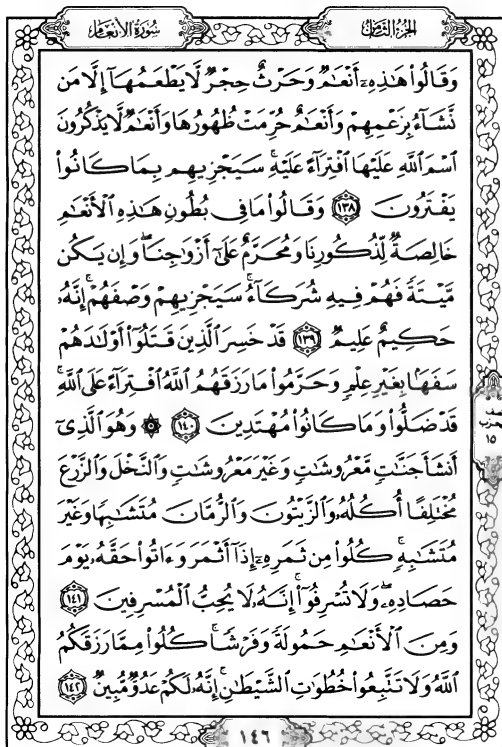 سُورَةُ الأَنْعَام
الجُزْءُ الثَّامِنُ
وَقَالُواْ هَٰذِهِۦٓ أَنْعَٰمٌ وَحَرْثٌ حِجْرٌ لَّا يَطْعَمُهَآ إِلَّا مَن
نَّشَآءُ بِزَعْمِهِمْ وَأَنْعَٰمٌ حُرِّمَتْ ظُهُورُهَا وَأَنْعَٰمٌ لَّا يَذْكُرُونَ
ٱسْمَ ٱللَّهِ عَلَيْهَا ٱفْتِرَآءً عَلَيْهِۚ سَيَجْزِيهِم بِمَا كَانُواْ
يَفْتَرُونَ ١٣٨ وَقَالُواْ مَا فِى بُطُونِ هَٰذِهِ ٱلْأَنْعَٰمِ
خَالِصَةٌ لِّذُكُورِنَا وَمُحَرَّمٌ عَلَىٰٓ أَزْوَٰجِنَاۖ وَإِن يَكُن
مَّيْتَةً فَهُمْ فِيهِ شُرَكَآءُۚ سَيَجْزِيهِمْ وَصْفَهُمْۚ إِنَّهُۥ
حَكِيمٌ عَلِيمٌ ١٣٩ قَدْ خَسِرَ ٱلَّذِينَ قَتَلُوٓاْ أَوْلَٰدَهُمْ
سَفَهًۢا بِغَيْرِ عِلْمٍ وَحَرَّمُواْ مَا رَزَقَهُمُ ٱللَّهُ ٱفْتِرَآءً عَلَى ٱللَّهِۚ
قَدْ ضَلُّواْ وَمَا كَانُواْ مُهْتَدِينَ ١٤٠ ۞ وَهُوَ ٱلَّذِىٓ
أَنشَأَ جَنَّٰتٍ مَّعْرُوشَٰتٍ وَغَيْرَ مَعْرُوشَٰتٍ وَٱلنَّخْلَ وَٱلزَّرْعَ
مُخْتَلِفًا أُكُلُهُۥ وَٱلزَّيْتُونَ وَٱلرُّمَّانَ مُتَشَٰبِهًا وَغَيْرَ
مُتَشَٰبِهٍۚ كُلُواْ مِن ثَمَرِهِۦٓ إِذَآ أَثْمَرَ وَءَاتُواْ حَقَّهُۥ يَوْمَ
حَصَادِهِۦۖ وَلَا تُسْرِفُوٓاْۚ إِنَّهُۥ لَا يُحِبُّ ٱلْمُسْرِفِينَ ١٤١
وَمِنَ ٱلْأَنْعَٰمِ حَمُولَةً وَفَرْشًاۚ كُلُواْ مِمَّا رَزَقَكُمُ
ٱللَّهُ وَلَا تَتَّبِعُواْ خُطُوَٰتِ ٱلشَّيْطَٰنِۚ إِنَّهُۥ لَكُمْ عَدُوٌّ مُّبِينٌ ١٤٢
١٥
١٤٦